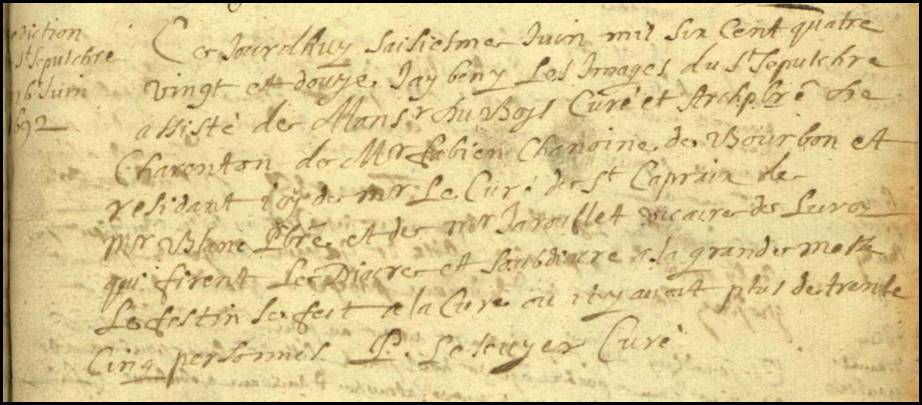 ediction
St Sepulchre
16e Juin
1692
Ce Jourdhuy Saisiesme Juin mil Six Cent quatre
vingt et douze Jay beny Les Images du St Sepulchre
assisté de Monsr du Boys Curé et Archpbrē de
Charenton de Mr fabien Chanoine de Bourbon et
residant icy de mr Le Curé de St Caprais de
mr Blanc Pbrē et de mr Jarouflet vicaire de Lurcy
qui firent Le Diacre et Soubdiacre a la grande messe
Le festin se feit a la Cure ou il y avoit plus de trente
Cinq personnes P. Lescuyer Curé